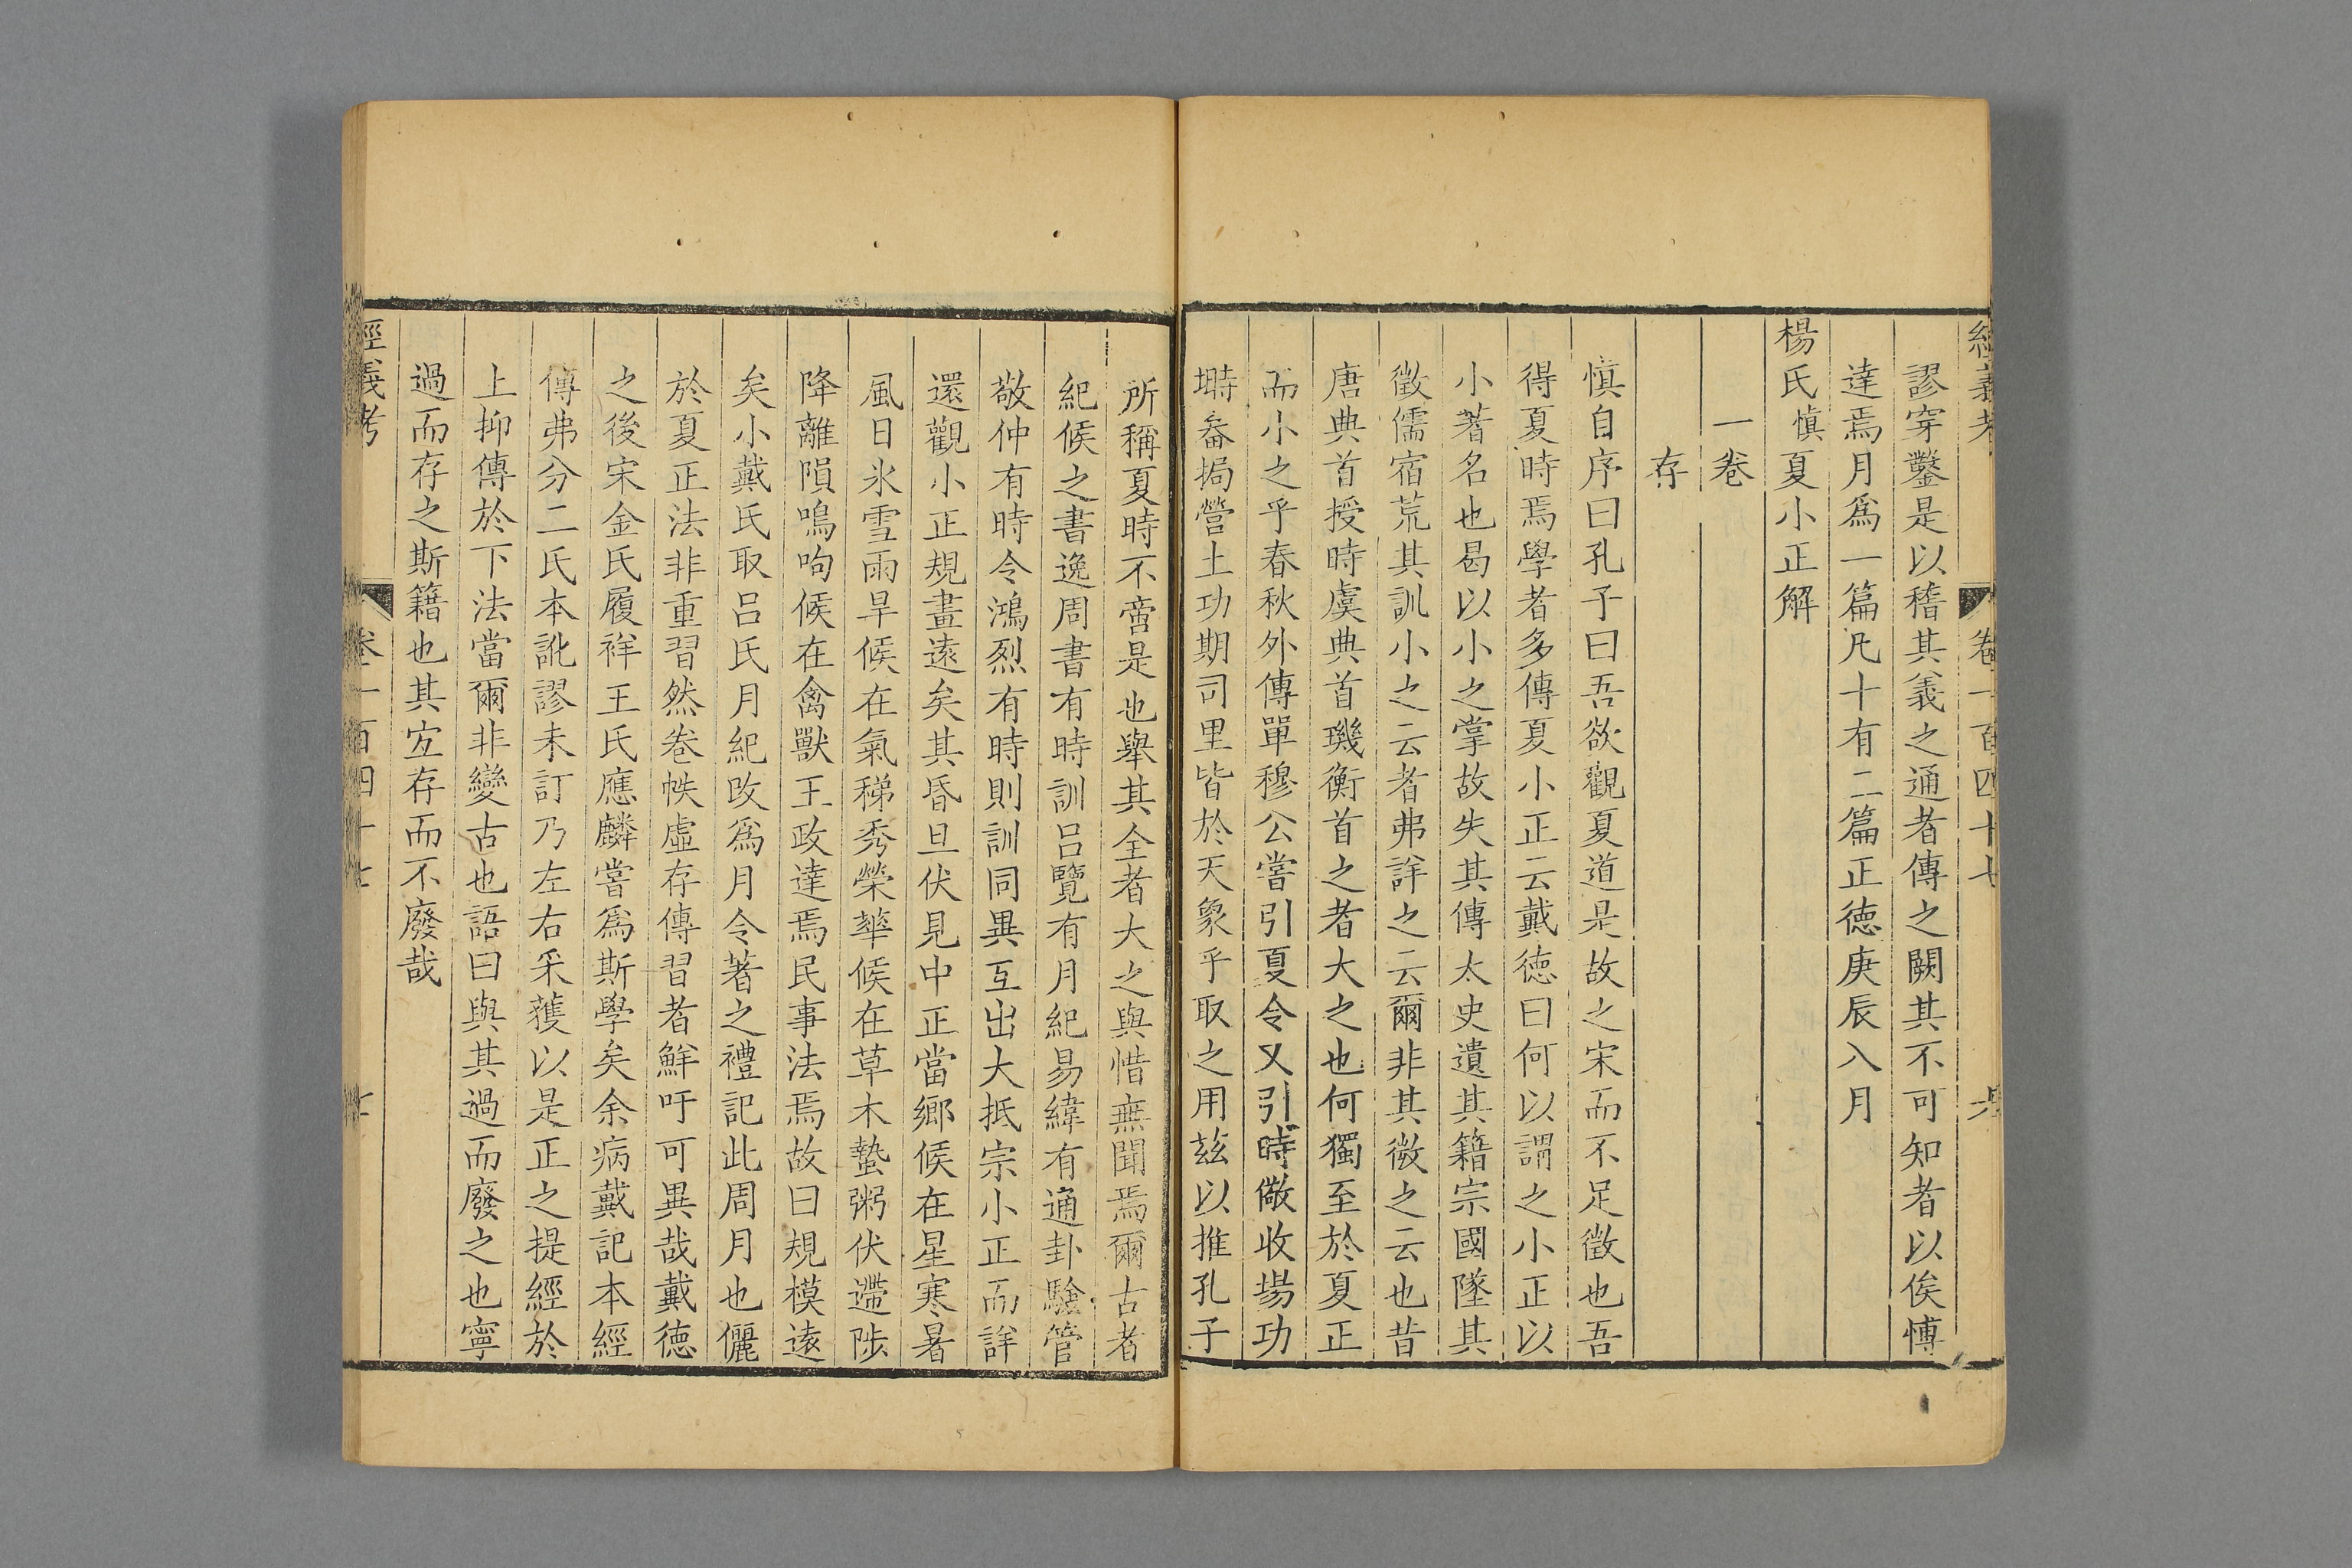 經義考 卷一百四十七
謬穿鑿是以稽其義之通者傳之闕其不可知者以俟愽
達焉月爲一篇凡十有二篇正徳庚辰入月
楊氏慎夏小正解
一卷
存
慎自序曰孔子曰吾欲觀夏道是故之宋而不足徴也吾
得夏時焉學者多傳夏小正云戴徳曰何以謂之小正以
小著名也曷以小之掌故失其傳太史遺其籍宗國墜其
徴儒宿荒其訓小之云者弗詳之云爾非其微之云也昔
唐典首授時虞典首璣衡首之者大之也何獨至於夏正
而小之乎春秋外傳單穆公嘗引夏令又引時儆收場功
塒畚挶營土功期司里皆於天象乎取之用玆以推孔子
所稱夏時不啻是也舉其全者大之與惜無聞焉爾古者
紀候之書逸周書有時訓吕覽有月紀易緯有通卦驗管
敬仲有時令鴻烈有時則訓同異互出大抵宗小正而詳
還觀小正規畫逺矣其昏旦伏見中正當鄉候在星寒暑
風日氷雪雨旱候在氣稊秀榮華候在草木蟄粥伏遰陟
降離隕鳴呴候在禽獸王政達焉民事法焉故曰規模逺
矣小戴氏取吕氏月紀改爲月令著之禮記此周月也儷
於夏正法非重習然卷帙虛存傳習者鮮吁可異哉戴徳
之後宋金氏履祥王氏應麟嘗爲斯學矣余病戴記本經
傳弗分二氏本訛謬未訂乃左右采䕶以是正之提經於
上抑傳於下法當爾非變古也語曰與其過而廢之也寧
過而存之斯籍也其宐存而不廢哉
經義考 卷一百四十七